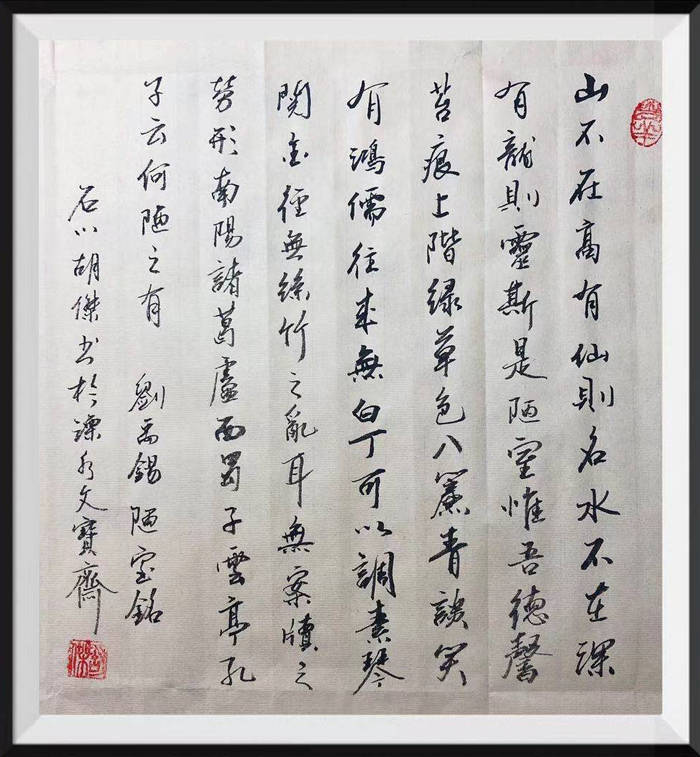 山不在高有仙則名水不在深
有龍則靈斯是陋室惟吾德馨
苔痕上階緑草色入簾青談笑
有鴻儒往來無白丁可以調素琴
閲金徑無絲竹之亂耳無案牘之
勞形南陽諸葛廬西蜀子雲亭孔
子云何陋之有 劉禹錫陋室銘
胡傑书於溧水文寶齋